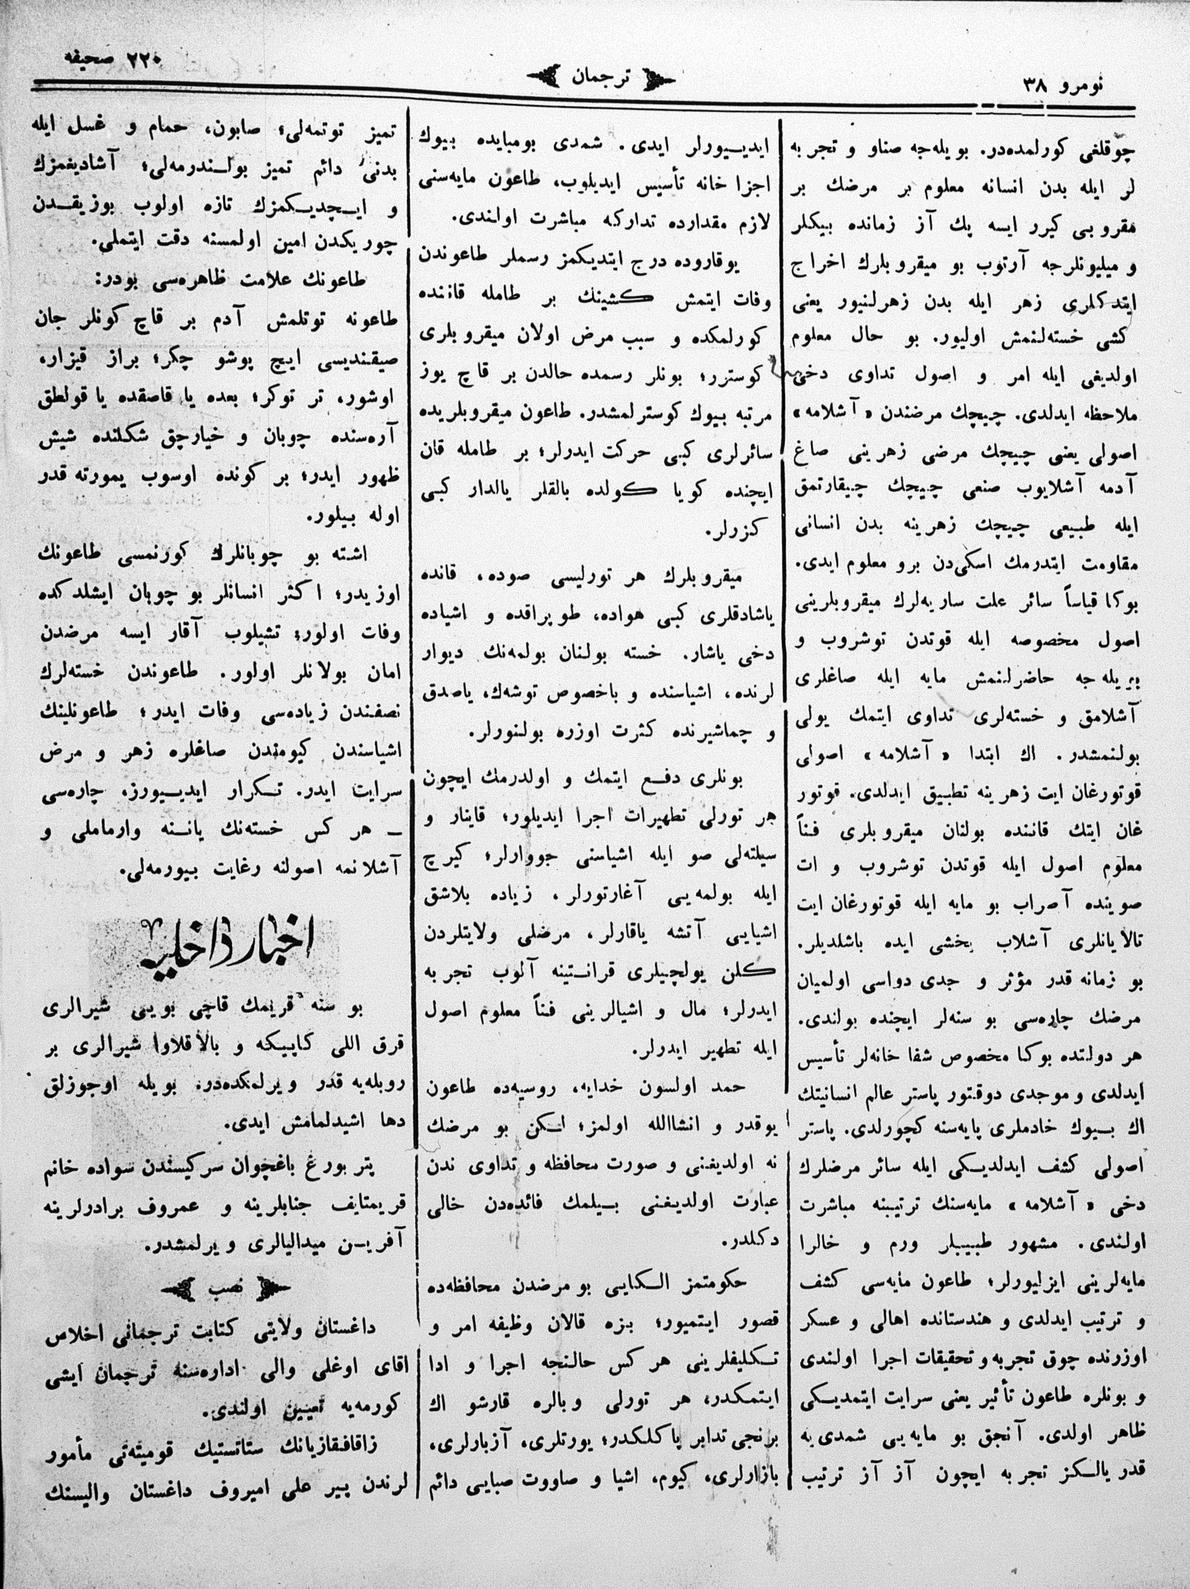 نومرو ٣٨
ترجمان
٢٢٠ صحيفه
چوقلغی كورلمده‌در. بويله‌جه صناو و تجربه
لر ايله بدن انسانه معلوم بر مرضك بر
مقروبی كيرر ايسه پك آز زمانده بيكلر
و ميليونلرجه آرتوب بو ميقروبلرك اخراج
ايتدكلری زهر ايله بدن زهرلنيور يعنی
كشی خسته‌لنمش اوليور. بو حال معلوم
اولديغی ايله امر و اصول تداوی دخی
ملاحظه ايدلدی. چيچك مرضندن «آشلامه»
اصولی يعنی چيچك مرضی زهرينی صاغ
آدمه آشلايوب صنعی چيچك چيقارتمق
ايله طبيعی چيچك زهرينه بدن انسانی
مقاومت ايتدرمك اسكی‌دن برو معلوم ايدی.
بوكا قياساً سائر علت ساريه‌لرك ميقروبلرينی
اصول مخصوصه ايله قوتدن توشروب و
بويله‌جه حاضرلنمش مايه ايله صاغلری
آشلامق و خسته‌لری تداوی ايتمك يولی
بولنمشدر. اك ابتدا «آشلامه» اصولی
قوتورغان ايت زهرينه تطبيق ايدلدی. قوتور
غان ايتك قاننده بولنان ميقروبلری فناً
معلوم اصول ايله قوتدن توشروب و ات
صوينده آصراب بو مايه ايله قوتورغان ايت
تالايانلری آشلاب يخشی ايده باشلديلر.
بو زمانه قدر مؤثر و جدی دواسی اولميان
مرضك چاره‌سی بو سنه‌لر ايچنده بولندی.
هر دولتده بوكا مخصوص شفا خانه‌لر تأسيس
ايدلدی و موجدی دوقتور پاستر عالم انسانيتك
اك بيوك خادملری پايه‌سنه كچورلدی. پاستر
اصولی كشف ايدلديكی ايله سائر مرضلرك
دخی «آشلامه» مايه‌سنك ترتيبنه مباشرت
اولندی. مشهور طبيبلر ورم و خالرا
مايه‌لرينی ايزليورلر؛ طاعون مايه‌سی كشف
و ترتيب ايدلدی و هندستانده اهالی و عسكر
اوزرنده چوق تجربه و تحقيقات اجرا اولندی
و بونلره طاعون تأثير يعنی سرايت ايتمديكی
ظاهر اولدی. آنجق بو مايه‌يی شمدی‌يه
قدر يالكز تجربه ايچون آز آز ترتيب
ايدييورلر ايدی. شمدی بومبايده بيوك
اجزا خانه تأسيس ايديلوب، طاعون مايه‌سنی
لازم مقدارده تداركه مباشرت اولندی.
يوقاروده درج ايتديكمز رسملر طاعوندن
وفات ايتمش كشينك بر طامله قاننده
كورلمكده و سبب مرض اولان ميقروبلری
كوسترر؛ بونلر رسمده حالدن بر قاچ يوز
مرتبه بيوك كوسترلمشدر. طاعون ميقروبلريده
سائرلری كبی حركت ايدرلر؛ بر طامله قان
ايچنده كويا كولده بالقلر يالدار كبی
كزرلر.
ميقروبلرك هر تورليسی صوده، قانده
ياشادقلری كبی هواده، طوپراقده و اشياده
دخی ياشار. خسته بولنان بولمه‌نك ديوار
لرنده، اشياسنده و باخصوص توشه‌ك، ياصدق
و چماشيرنده كثرت اوزره بولنورلر.
بونلری دفع ايتمك و اولدرمك ايچون
هر تورلی تطهيرات اجرا ايديلور؛ قاينار و
سيلته‌لی صو ايله اشياسنی جووارلر؛ كيرچ
ايله بولمه‌يی آغارتورلر، زياده بلاشق
اشيايی آتشه ياقارلر، مرضلی ولايتلردن
كلن يولچيلری قرانتينه آلوب تجربه
ايدرلر؛ مال و اشيالرينی فناً معلوم اصول
ايله تطهير ايدرلر.
حمد اولسون خدايه، روسيه‌ده طاعون
يوقدر و انشاالله اولمز؛ لكن بو مرضك
نه اولديغنی و صورت محافظه و تداوی ندن
عبارت اولديغنی بيلمك فائده‌دن خالی
دكلدر.
حكومتمز الكايی بو مرضدن محافظه‌ده
قصور ايتميور؛ بزه قالان وظيفه امر و
تكليفلرينی هر كس حالنجه اجرا و ادا
ايتمكدر، هر تورلی وبالره قارشو اك
برنجی تدابر پاكلكدر؛ يورتلری، آزبارلری،
بازارلری، كيوم، اشيا و صاووت صبايی دائم
تميز توتمه‌لی؛ صابون، حمام و غسل ايله
بدنی دائم تميز بولندرمه‌لی؛ آشاديغمزك
و ايچديكمزك تازه اولوب بوزيقدن
چوريكدن امين اولمسنه دقت ايتملی.
طاعونك علامت ظاهره‌سی بودر:
طاعونه توتلمش آدم بر قاچ كونلر جان
صيقنديسی ايچ پوشو چكر؛ براز قيزار،
اوشور، تر توكر؛ بعده يا قاصقده يا قولطق
آره‌سنده چوبان و خيارچق شكلنده شيش
ظهور ايدر؛ بر كونده اوسوب يمورته قدر
اوله بيلور.
اشته بو چوبانلرك كورنمسی طاعونك
اوزيدر؛ اكثر انسانلر بو چوبان ايشلدكده
وفات اولور؛ تشيلوب آقار ايسه مرضدن
امان بولانلر اولور. طاعوندن خسته‌لرك
نصفندن زياده‌سی وفات ايدر؛ طاعونلينك
اشياسندن كيومندن صاغلره زهر و مرض
سرايت ايدر. تكرار ايدييورز، چاره‌سی
ـ هر كس خسته‌نك يانه وارماملی و
آشلانمه اصولنه رغايت بيورمه‌لی.
اخبار داخليه
بو سنه قريمك قاچی بويی شيرالری
قرق اللی كاپيكه و بالاقلاوا شيرالری بر
روبله‌يه قدر ويرلمكده‌در. بويله اوجوزلق
دها اشيدلمامش ايدی.
پتربورغ باغچوان سركيسندن سواده خانم
قريمتايف جنابلرينه و عمروف برادرلرينه
آفرين ميداليالری ويرلمشدر.
نصب
داغستان ولايتی كتابت ترجمانی اخلاص
اقای اوغلی والی اداره‌سنه ترجمان ايشی
كورمه‌يه تعيين اولندی.
زاقافقازيانك ستاتستيك قوميته‌تی مأمور
لرندن پير علی اميروف داغستان واليسنك